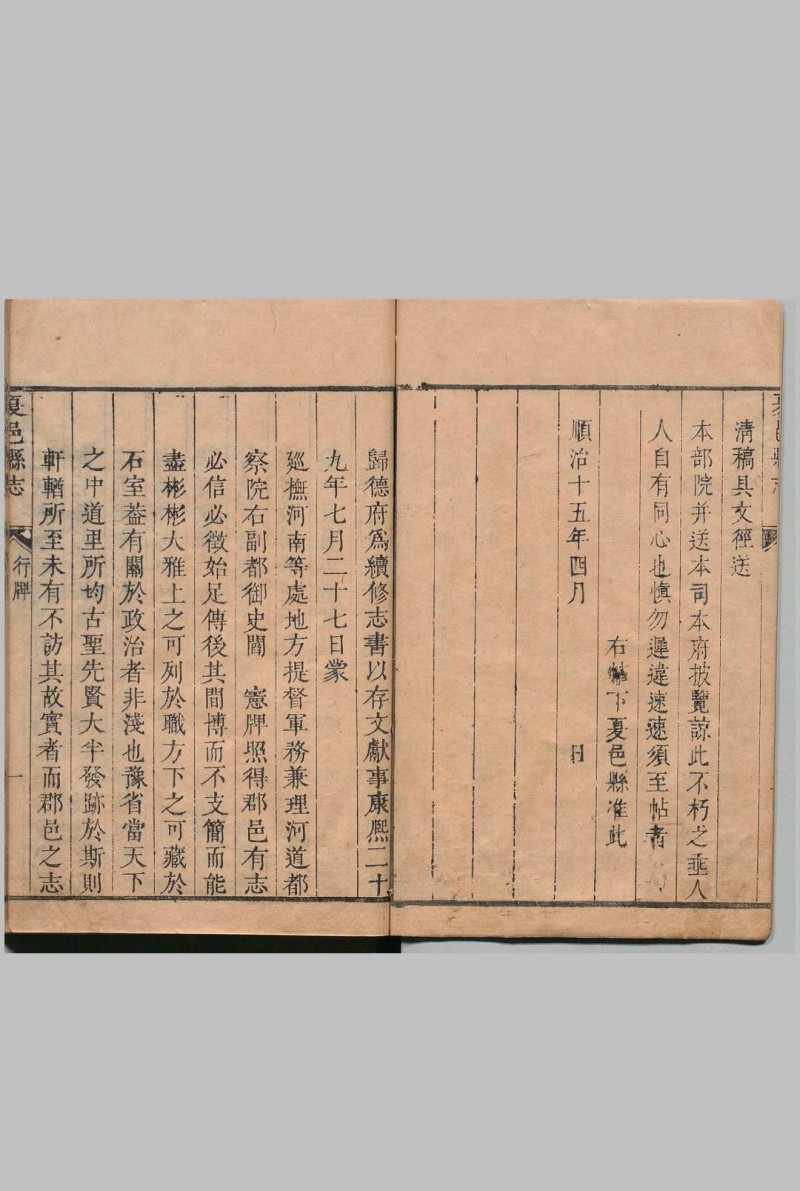 清稿具文徑送
本部院并送本司本府披覽諒此不朽之垂人
人自有同心也慎勿遲違速速須至帖者
右帖下夏邑縣准此
順治十五年四月 日
歸德府爲續修志書以存文獻事康熙二十
九年七月二十七日蒙
廵撫河南等處地方提督軍務兼理河道都
察院右副都御史閻 憲牌照得郡邑有志
必信必徵始足傳後其間博而不支簡而能
盡彬彬大雅上之可列於職方下之可藏於
石室葢有關於政治者非淺也豫省當天下
之中道里所均古聖先賢大半發跡於斯則
軒輶所至未有不訪其故實者而郡邑之志
夏邑縣志 行牌 一